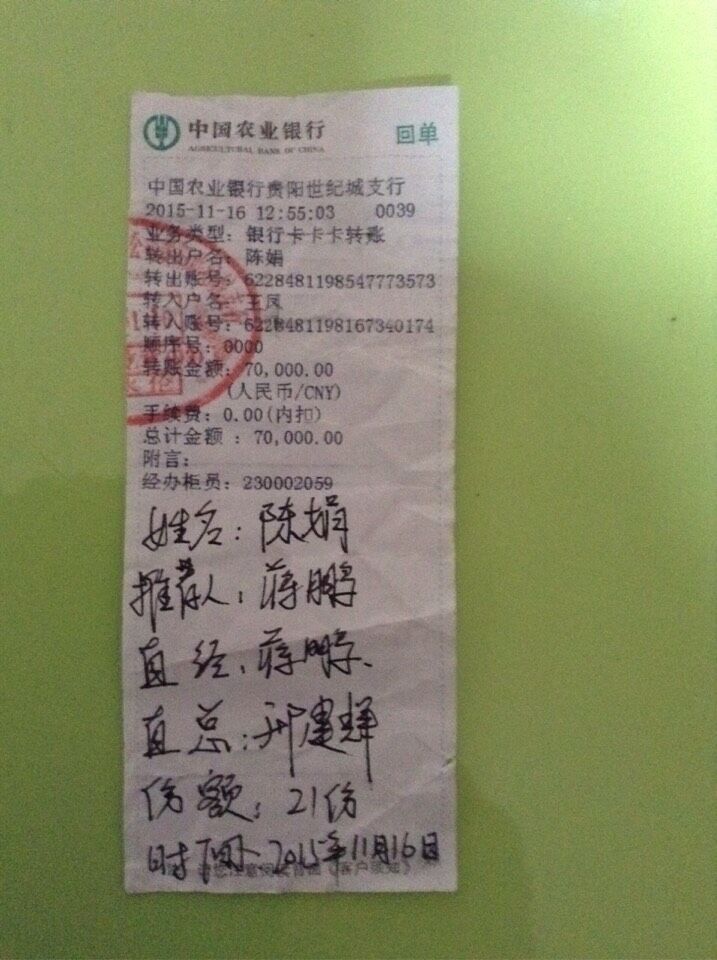 中国农业银行
AGRICULTURAL BANK OF CHINA
回单
中国农业银行贵阳世纪城支行
2015-11-16 12:55:03 0039
业务类型：银行卡卡卡转账
转出户名：陈娟
转出账号：6228481198547773573
转入户名：王凤
转入账号：6228481198167340174
顺序号：0000
转账金额：70,000.00
(人民币/CNY)
手续费：0.00(内扣)
总计金额：70,000.00
附言：
经办柜员：230002059
姓名：陈娟
推荐人：蒋鹏
直经：蒋鹏
直总：邢建辉
份额：21份
时间：2015年11月16日